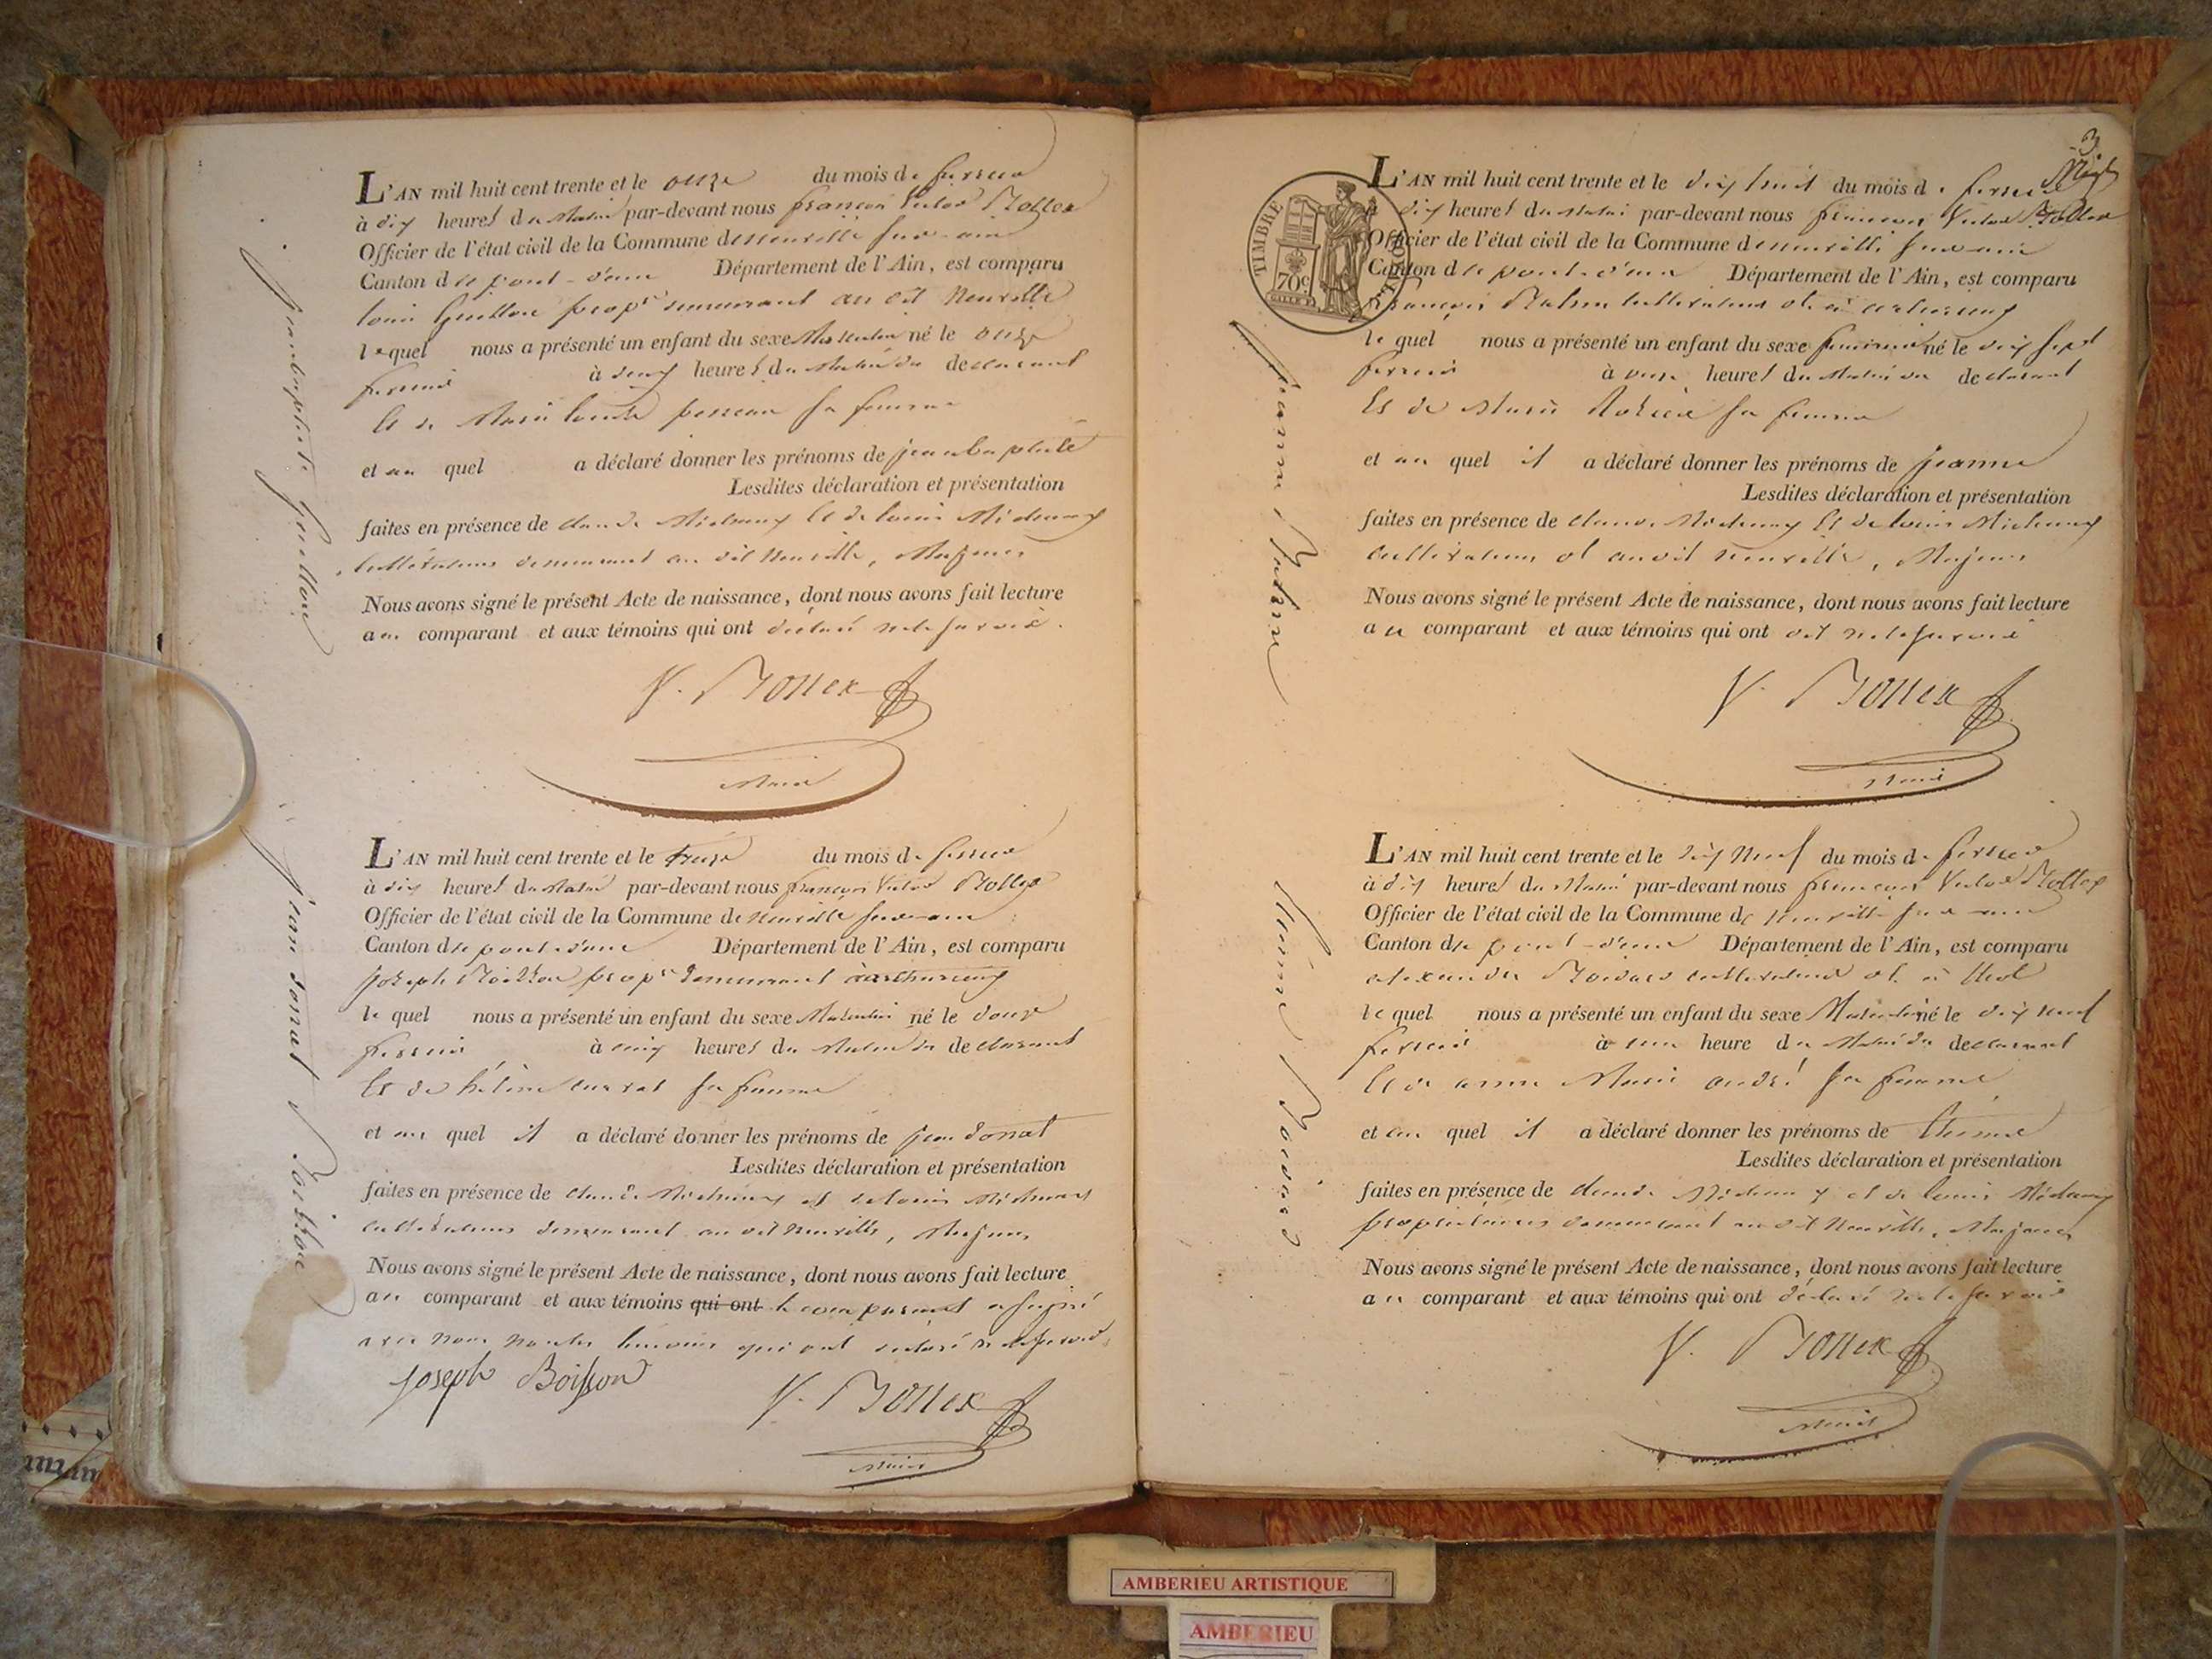 L'AN mil huit cent trente et le onze du mois de fevrier
à dix heures du Matin par-devant nous françois Victor
Officier de l'état civil de la Commune de neuville sur ain
Canton de pont-d'ain Département de l'Ain, est comparu
louis Guillon prop.re demeurant au dit Neuville
lequel nous a présenté un enfant du sexe Masculin né le onze
fevrier à deux heures du Matin du declarant
Et de Marie sa femme
et au quel a déclaré donner les prénoms de jean baptiste
Lesdites déclaration et présentation
faites en présence de claude Et de louis
cultivateurs demeurant au dit Neuville, Majeurs
Nous avons signé le présent Acte de naissance, dont nous avons fait lecture
au comparant et aux témoins qui ont declaré ne le savoir.
Maire
jeanbaptiste Guillon
L'AN mil huit cent trente et le treize du mois de fevrier
à dix heures du Matin par-devant nous françois Victor
Officier de l'état civil de la Commune de Neuville sur ain
Canton de pont-d'ain Département de l'Ain, est comparu
Joseph Boisson prop.re demeurant
le quel nous a présenté un enfant du sexe Masculin né le douze
fevrier à cinq heures du Matin du declarant
Et de hélène sa femme
et au quel il a déclaré donner les prénoms de jean donat
Lesdites déclaration et présentation
faites en présence de claude et de louis
cultivateurs demeurant au dit Neuville, Majeurs
Nous avons signé le présent Acte de naissance, dont nous avons fait lecture
au comparant et aux témoins qui ont le comparant a signé
avec nous témoins qui ont declaré ne le savoir
Joseph Boisson
Maire
jean donat Boisson
3
TIMBRE
70c
L'AN mil huit cent trente et le dix huit du mois de fevrier
à dix heures du Matin par-devant nous françois Victor
Officier de l'état civil de la Commune de neuville sur ain
Canton de pont-d'ain Département de l'Ain, est comparu
françois cultivateur
le quel nous a présenté un enfant du sexe feminin né le dix sept
fevrier à heures du Matin du declarant
Et de Marie sa femme
et au quel il a déclaré donner les prénoms de jeanne
Lesdites déclaration et présentation
faites en présence de claude Et de louis
cultivateurs au dit neuville, Majeurs
Nous avons signé le présent Acte de naissance, dont nous avons fait lecture
au comparant et aux témoins qui ont dit ne le savoir
Maire
jeanne
L'AN mil huit cent trente et le dix Neuf du mois de fevrier
à dix heures du Matin par-devant nous françois Victor
Officier de l'état civil de la Commune de neuville sur ain
Canton de pont-d'ain Département de l'Ain, est comparu
alexandre cultivateur
le quel nous a présenté un enfant du sexe Masculin né le dix neuf
fevrier à une heure du Matin du declarant
Et de anne Marie sa femme
et au quel il a déclaré donner les prénoms de
Lesdites déclaration et présentation
faites en présence de claude et de louis
propriétaires demeurant au dit Neuville, Majeurs
Nous avons signé le présent Acte de naissance, dont nous avons fait lecture
au comparant et aux témoins qui ont declaré ne le savoir
Maire
AMBERIEU ARTISTIQUE
AMBERIEU